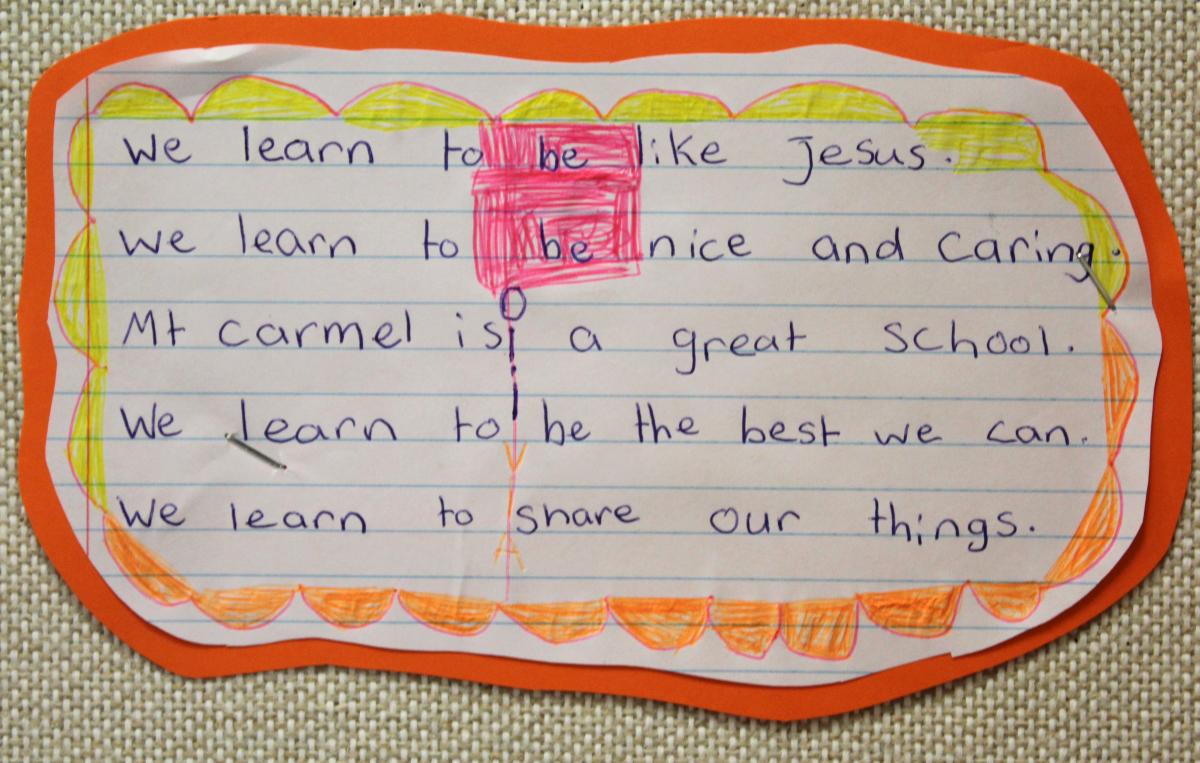 We learn to be like Jesus.
We learn to be nice and caring.
Mt carmel is a great school.
We learn to be the best we can.
We learn to share our things.